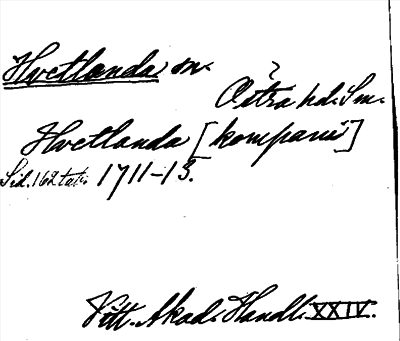 Hvetlanda sn.
Östra hd. Sm.
Hvetlanda [kompani]
Sid. 162 1711-13.
Vitt. Akad. Handl. XXIV.